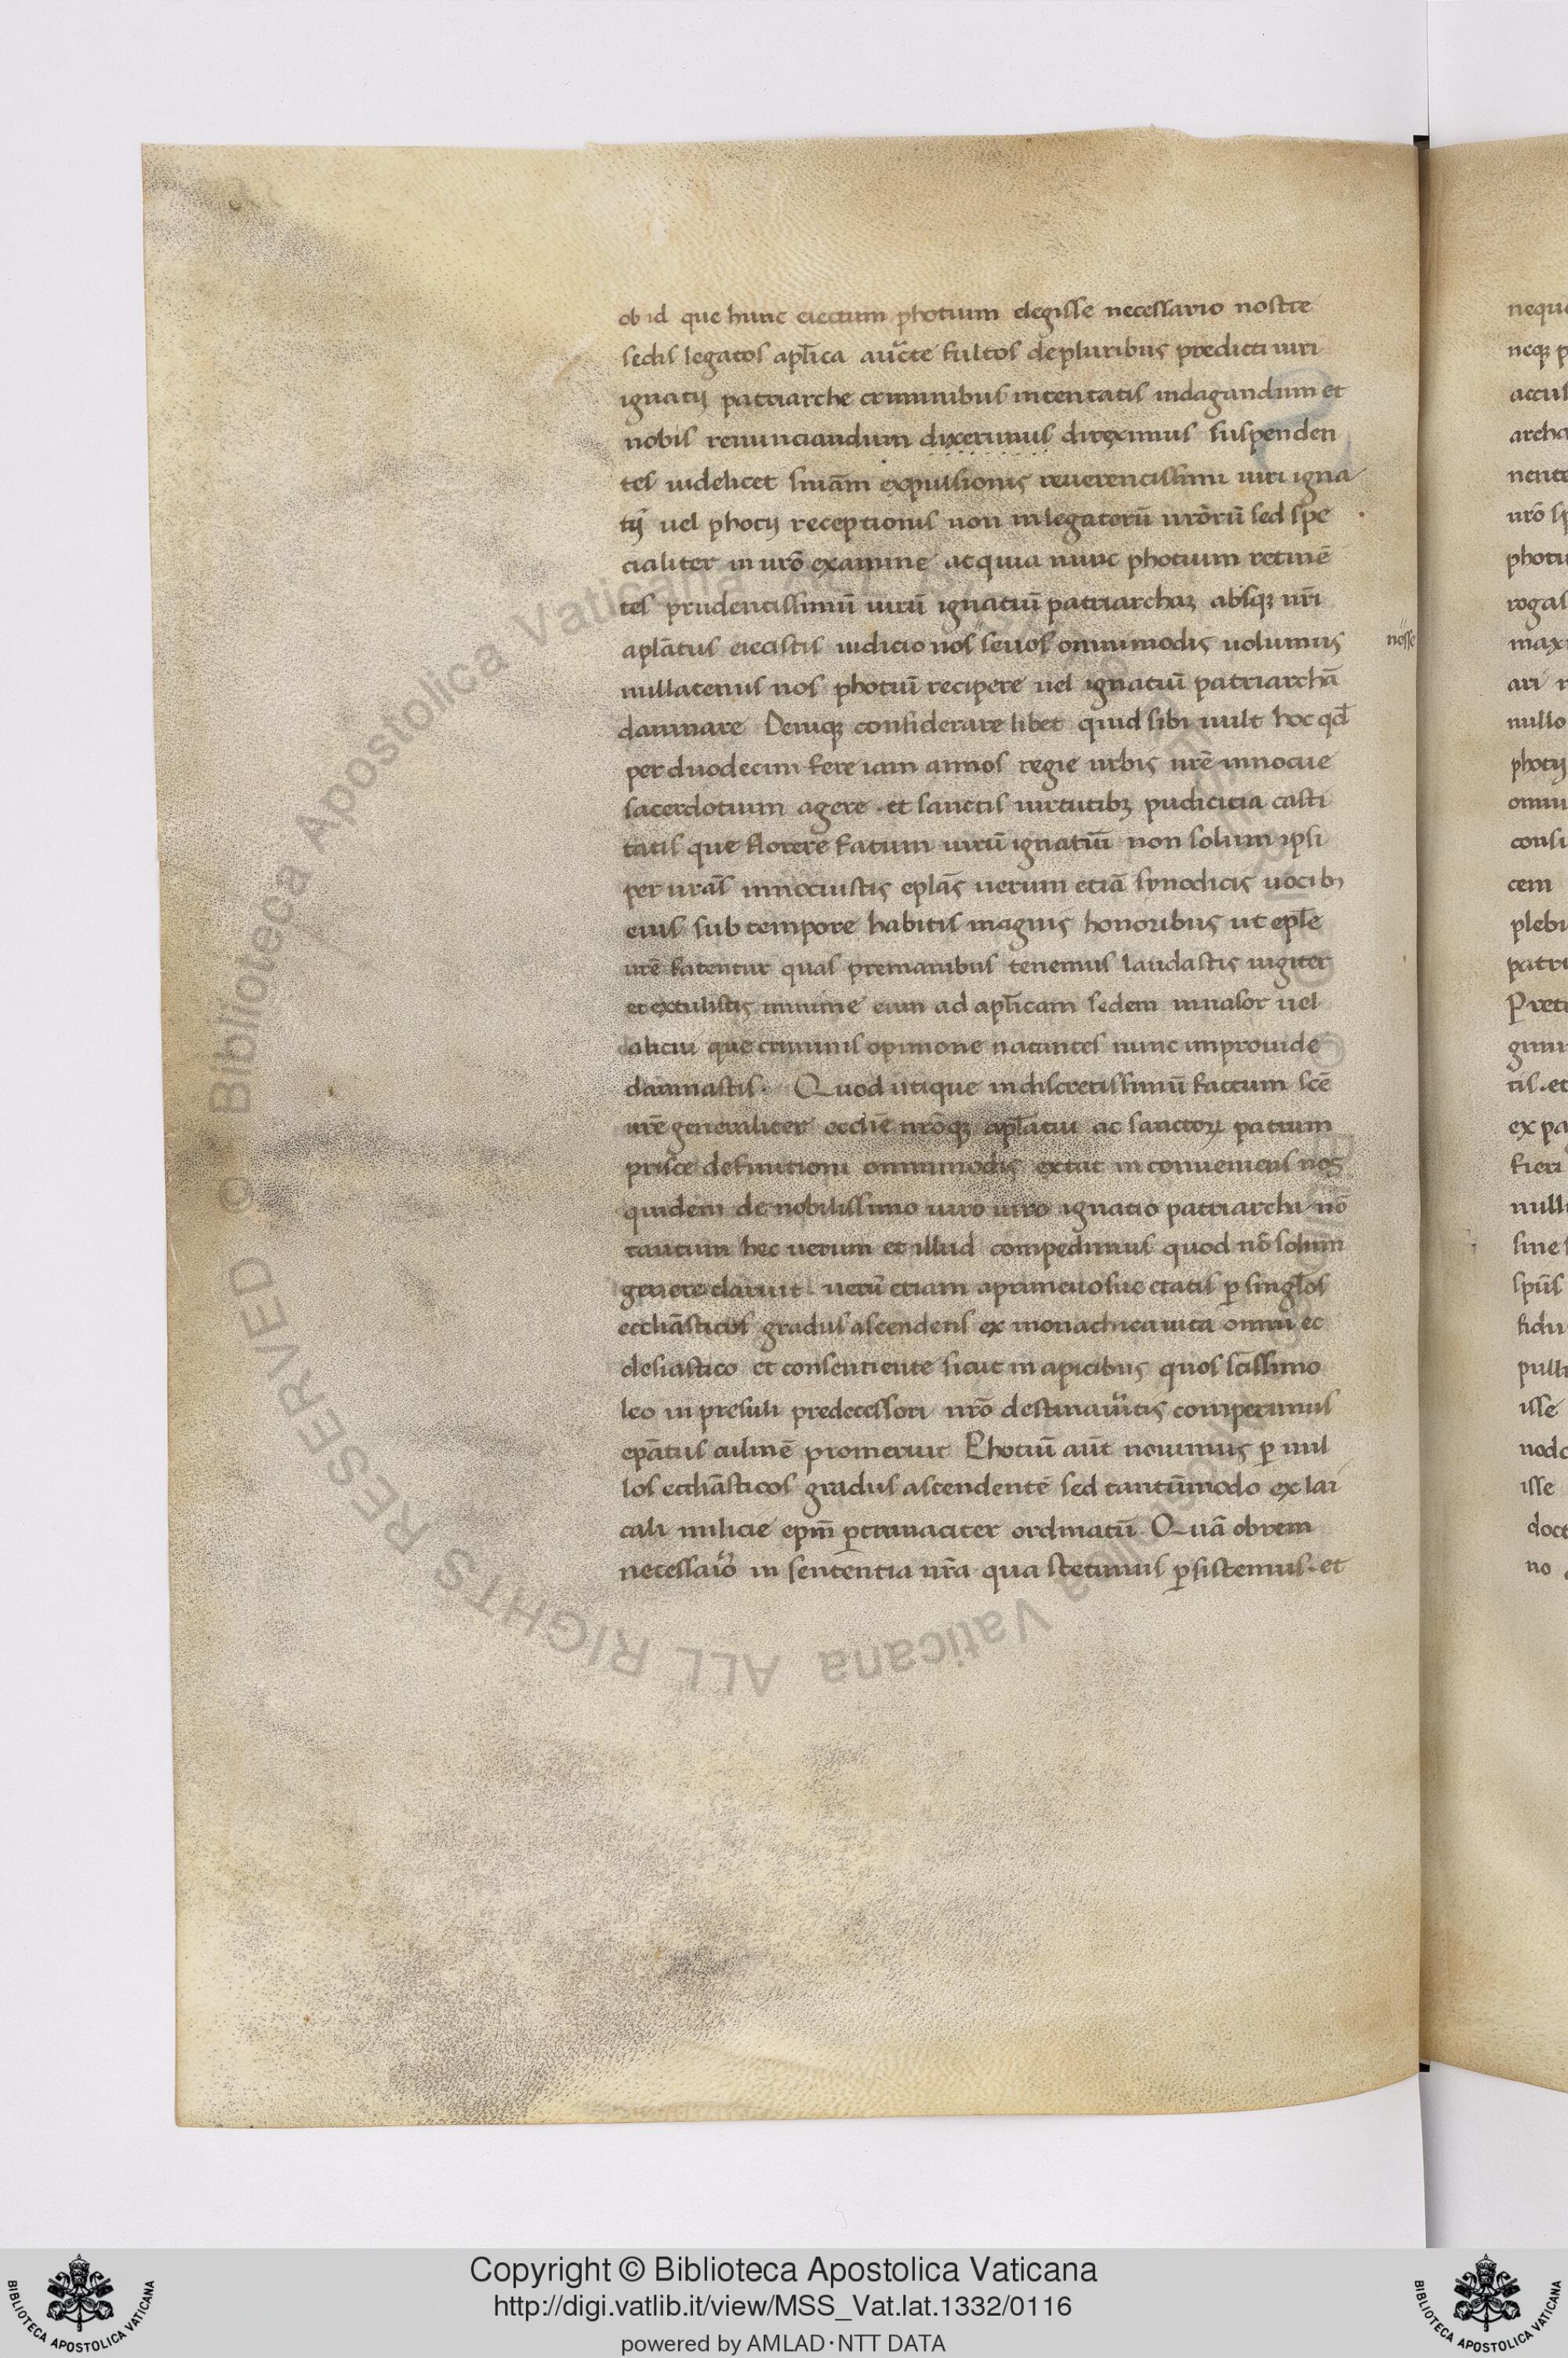 ob id que hunc eiectum photium elegisse necessario nostre
sedis legatos apl̄ica auc̄te fultos de pluribus predicti uiri
ignatij patriarche criminibus intentatis indagandum et
nobis renunciandum dixerimus direximus suspenden
tes uidelicet sniām expulsionis reuerentissimi uiri igna
tij uel photij receptionis non in legatorū nrōrū sed spe
cialiter in nrō examine at quia nunc photium retinē
tes prudentissimū uirū ignatiū patriarchaȝ absqȝ nrī
aplātus eiecistis iudicio nos seuos omnimodis uolumus
nosse
nullatenus nos photiū recipere uel ignatiū patriarchā
damnare Deniqȝ considerare libet quid sibi uult hoc qd̄
per duodecim fere iam annos regie urbis urē innocue
sacerdotium agere · et sanctis uirtutibȝ pudicicia casti
tatis que florere fatum uirū ignatiū non solum ipsi
per urās innotuistis eplās uerum etiā synodicis uocibȝ
eius sub tempore habitis magnis honoribus ut epl̄e
urē fatentur quas pre manibus tenemus laudastis iugiter
et extulistis minime eum ad apl̄icam sedem inuasor uel
alicui que criminis opinione natantes nunc improuide
damnastis · Quod utique indiscretissimū factum scē
urē generaliter ecclīe nrōqȝ aplātui ac sanctoꝝ patrum
prisce definitioni omnimodis extat inconueniens nos
quidem de nobilissimo uiro uiro ignatio patriarchi nō
tantum hec uerum et illud compedimus quod nō solum
genere claruit uerū etiam a primeuo sue etatis ꝑ singlōs
ecclīāsticos gradus ascendens ex monachica uita omni ec
clesiastico et consentiente sicut in apicibus quos scīssimo
leo in presuli predecessori nrō destinauitis comperimus
epātus culmē promeruit Photiū aūt nouimus ꝑ nul
los ecclīāsticos gradus ascendentē sed tantūmodo ex lai
cali milicie epm̄ ꝑtinaciter ordinatū Quā obrem
necessario in sententia nrā qua stetimus ꝑsistemus · et
Copyright © Biblioteca Apostolica Vaticana
http://digi.vatlib.it/view/MSS_Vat.lat.1332/0116
powered by AMLAD·NTT DATA